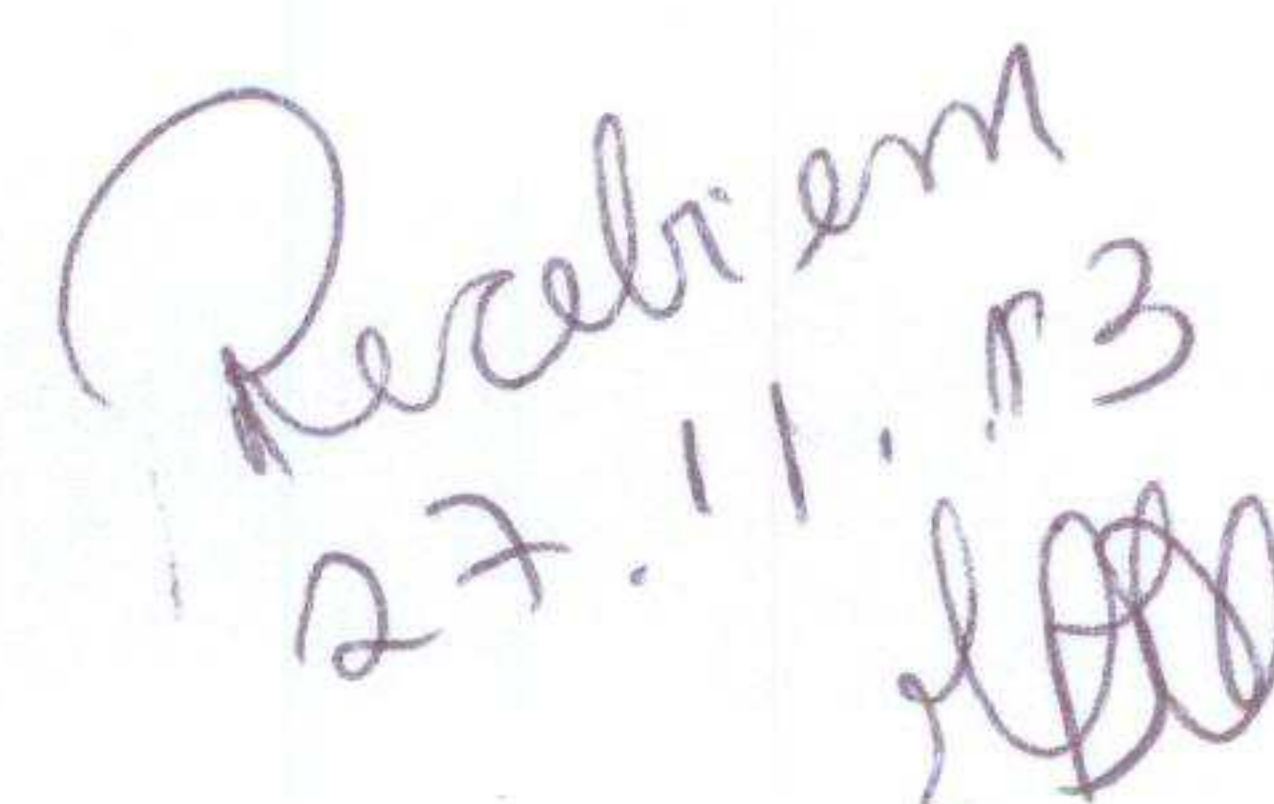 Recebi em
27.11.13